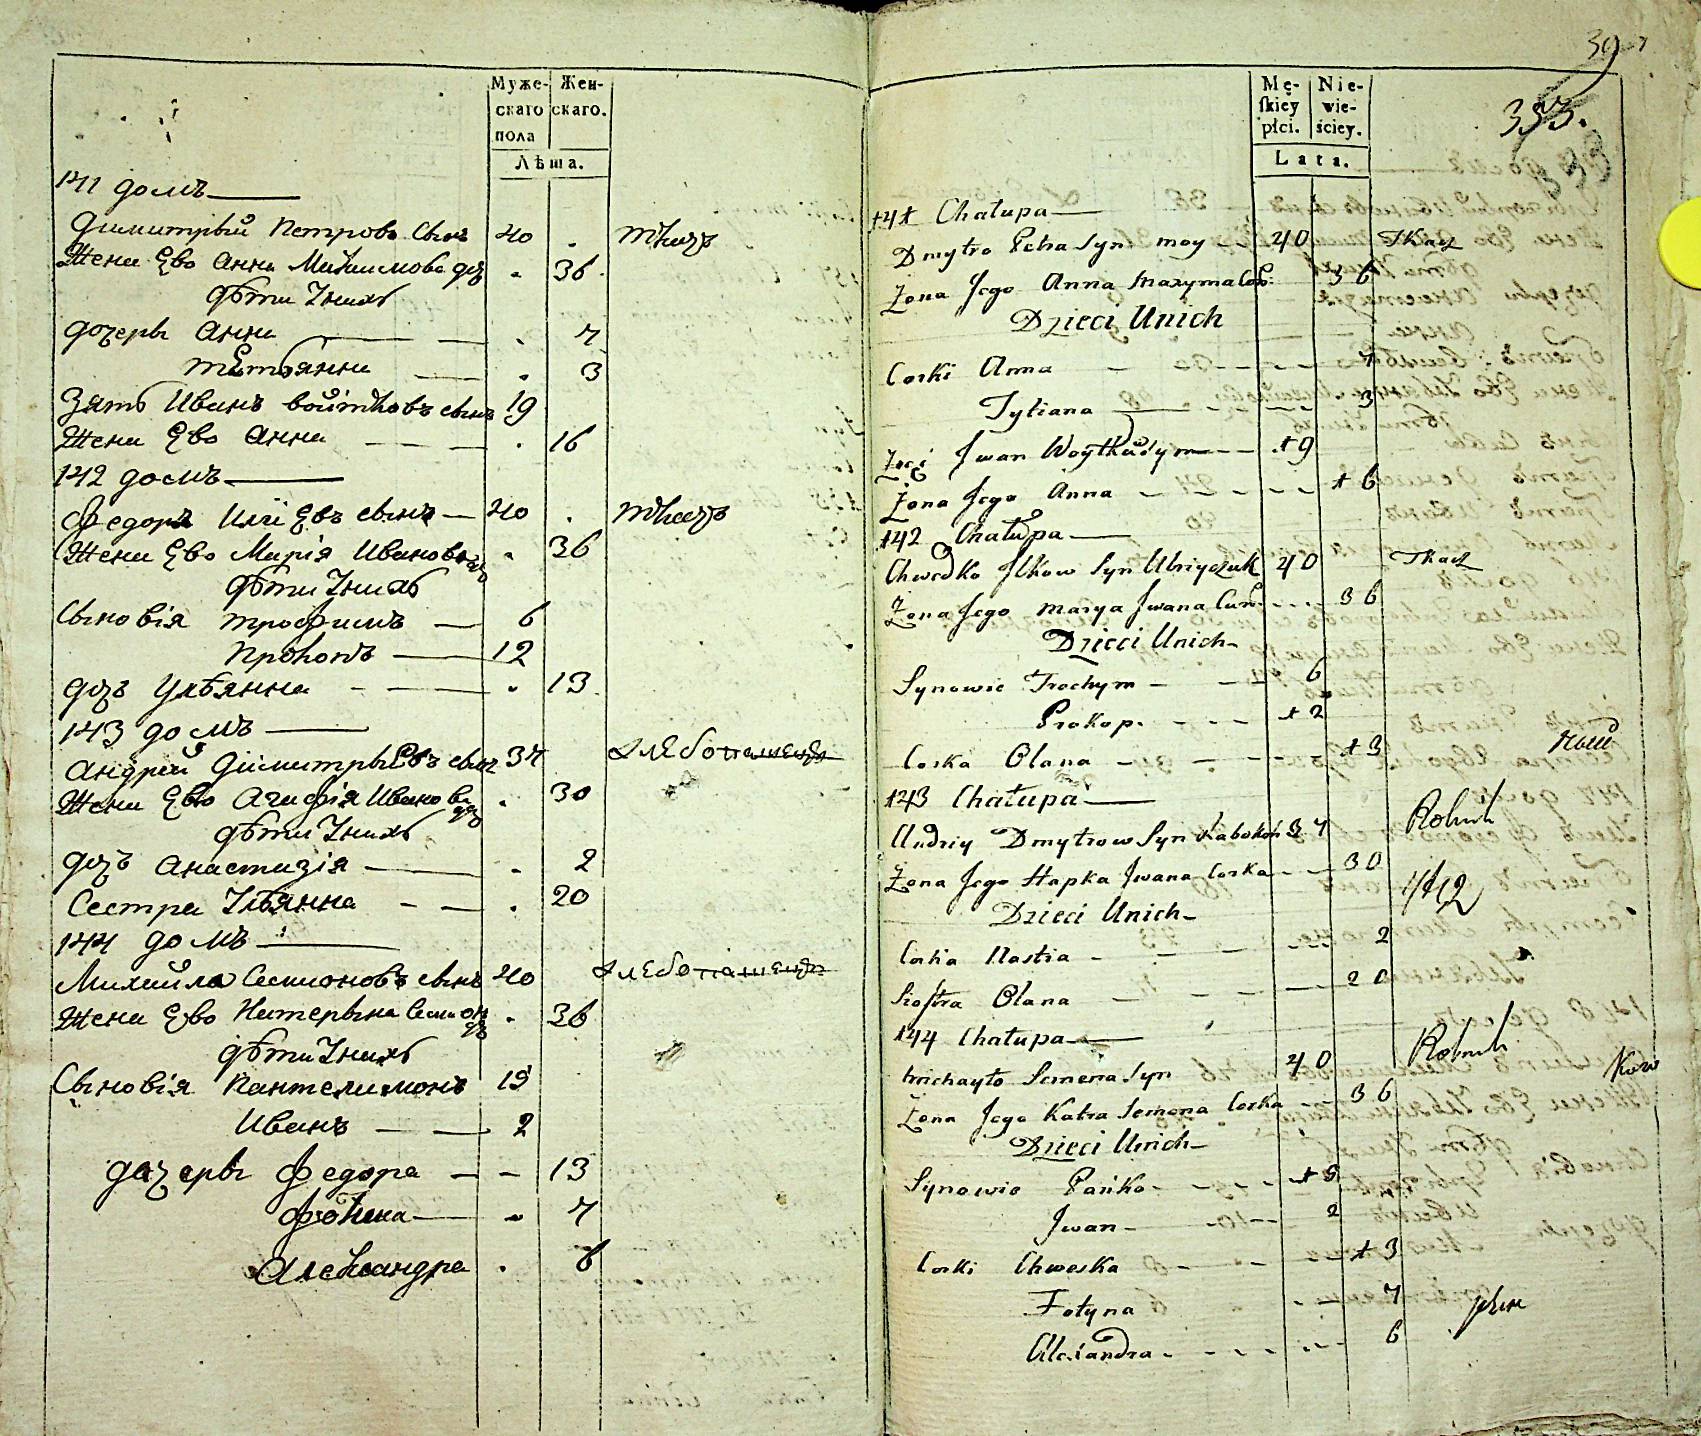 Муже-
скаго
пола
Жен-
скаго.
Лѣта.
141 домъ
Димитрый Петровъ сынъ 40 . ткачъ
Жена Ево Анна Максимова доч . 36
дѣти Унихъ
дочеры Анна . 7
тЕтьянна . 3
Зять Иванъ войтковъ сынъ 19
Жена Ево Анна . 16
142 домъ
Федоръ Илїевъ сынъ 40 . ткачъ
Жена Ево Марія Иванова доч . 36
дѣти Унихъ
Сыновія трофимъ 6
Прокопъ 12
дочъ Ульянна . 13
143 домъ
Андрей ДимитрыЕвъ сынъ 37 хлЕбопашецъ
Жена Ево Агафія Иванова доч . 30
дѣти Унихъ
дочъ Анастазія . 2
Сестра Ульянна . 20
144 домъ
Михайла Семионовъ сынъ 40 хлЕбопашецъ
Жена Ево Катерына Семион дочъ . 36
дѣти Унихъ
Сыновія Пантелимонъ 19
Иванъ 2
дочеры Федора 13
Фотина . 7
Александра . 6
39
353.
333
Mę-
skiey
płci.
Nie-
wie-
ściey.
Lata.
141 Chałupa
Dmytro Petra Syn 40 Tkacz
Żona Jego Anna Maxyma Cor: 36
Dzieci Unich
Corki Anna 7
Tytiana 3
Zięć Jwan Woytków Syn 19
Żona Jego Anna 16
142 Chałupa
Chwedko Jlkow Syn 40 Tkacz
Żona Jego Marya Jwana Cur: 36
Dzieci Unich
Synowie Trochym 6
Prokop. 12
Corka Olana 13
143 Chałupa
Andriy Dmytrow Syn 37 Rolnik
Żona Jego Hapka Jwana Corka 30
Dzieci Unich
Corka Nastia 2
Siostra Olana 20
144 Chałupa
Michayło Semena Syn 40 Rolnik
Żona Jego Katra Semena Corka 36
Dzieci Unich
Synowie Pańko 19
Jwan 2
Corki Chweska 13
Fotyna 7
Alexandra 6